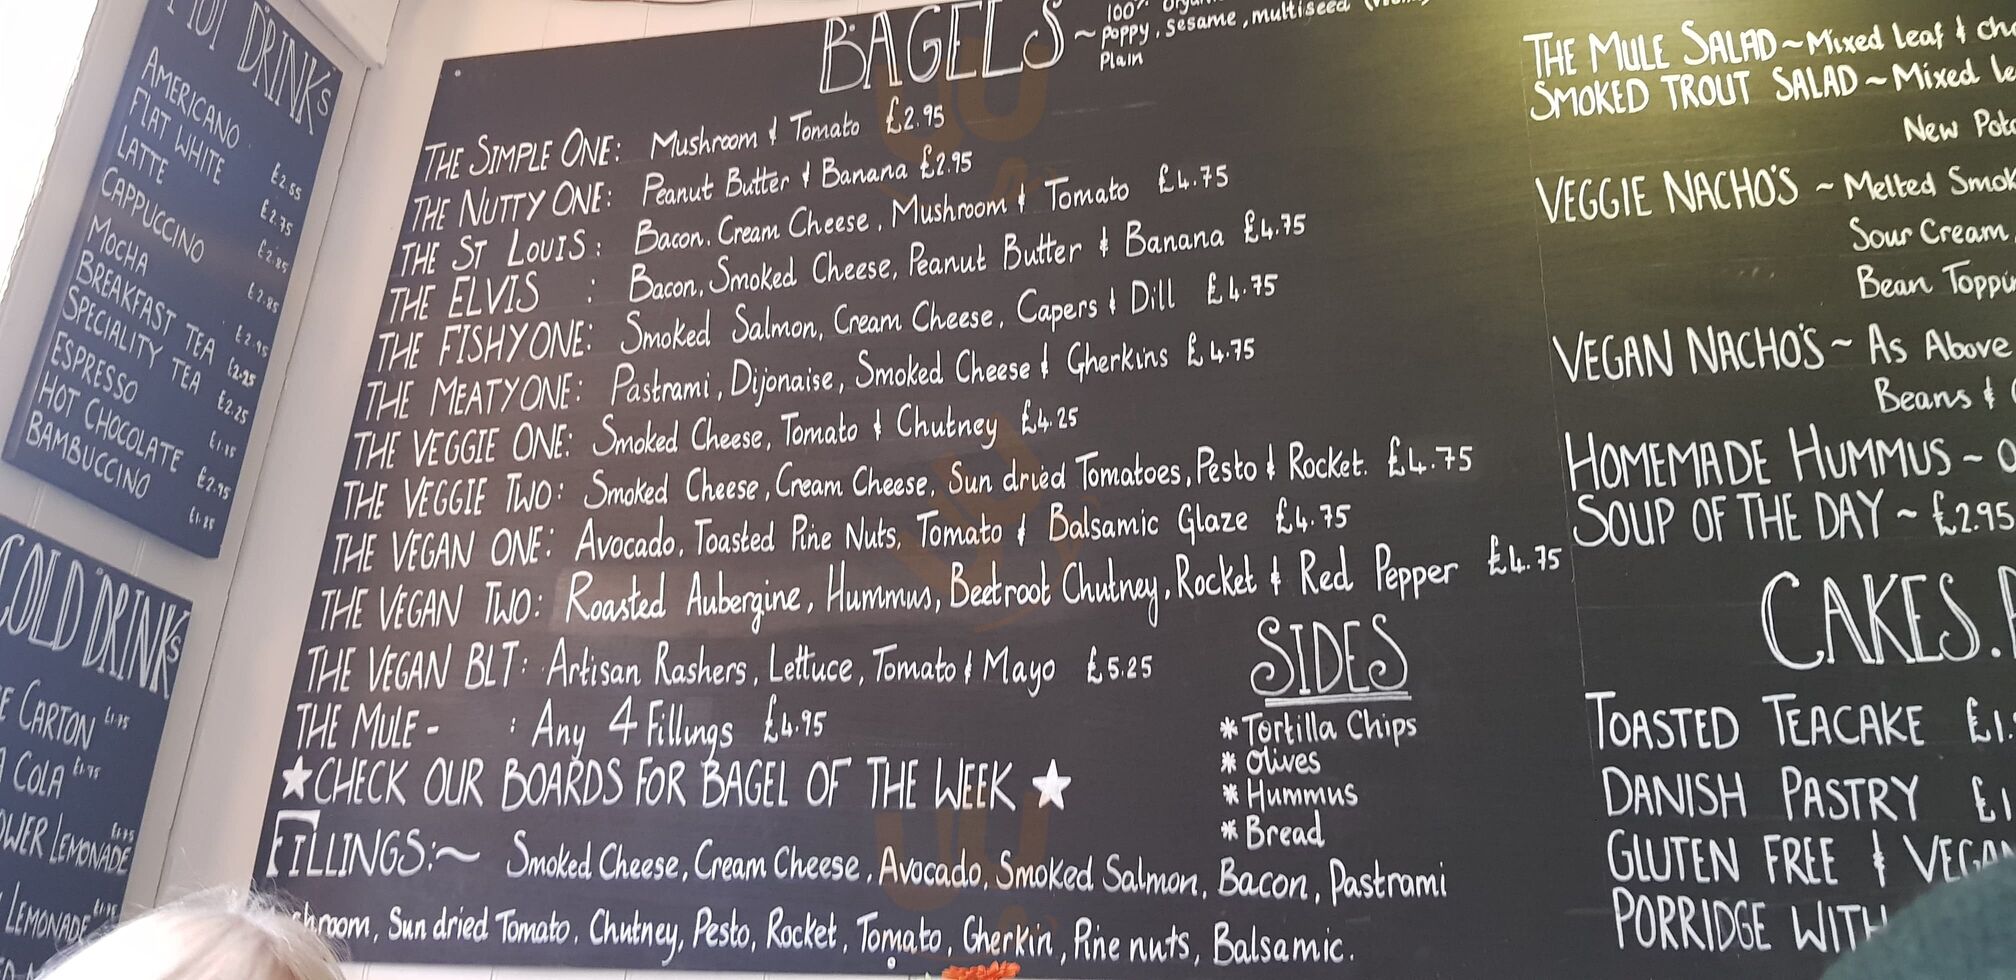 HOT DRINKS
AMERICANO £2.55
FLAT WHITE £2.75
LATTE £2.85
CAPPUCCINO £2.85
MOCHA £2.95
BREAKFAST TEA £2.25
SPECIALITY TEA £2.25
ESPRESSO
HOT CHOCOLATE £2.95
BAMBUCCINO
COLD DRINKS
CARTON £1.75
COLA £1.75
LEMONADE
LEMONADE
BAGELS ~ 100%
Poppy, Sesame, multiseed
Plain
THE SIMPLE ONE: Mushroom & Tomato £2.95
THE NUTTY ONE: Peanut Butter & Banana £2.95
THE ST LOUIS: Bacon, Cream Cheese, Mushroom & Tomato £4.75
THE ELVIS : Bacon, Smoked Cheese, Peanut Butter & Banana £4.75
THE FISHY ONE: Smoked Salmon, Cream Cheese, Capers & Dill £4.75
THE MEATY ONE: Pastrami, Dijonaise, Smoked Cheese & Gherkins £4.75
THE VEGGIE ONE: Smoked Cheese, Tomato & Chutney £4.25
THE VEGGIE TWO: Smoked Cheese, Cream Cheese, Sun dried Tomatoes, Pesto & Rocket. £4.75
THE VEGAN ONE: Avocado, Toasted Pine Nuts, Tomato & Balsamic Glaze £4.75
THE VEGAN TWO: Roasted Aubergine, Hummus, Beetroot Chutney, Rocket & Red Pepper £4.75
THE VEGAN BLT: Artisan Rashers, Lettuce, Tomato & Mayo £5.25
THE MULE - : Any 4 Fillings £4.95
★CHECK OUR BOARDS FOR BAGEL OF THE WEEK ★
FILLINGS:~ Smoked Cheese, Cream Cheese, Avocado, Smoked Salmon, Bacon, Pastrami
hroom, Sun dried Tomato, Chutney, Pesto, Rocket, Tomato, Gherkin, Pine nuts, Balsamic.
SIDES
* Tortilla Chips
* Olives
* Hummus
* Bread
THE MULE SALAD ~ Mixed Leaf &
SMOKED TROUT SALAD ~ Mixed
New
VEGGIE NACHO'S ~ Melted
Sour Cream
Bean
VEGAN NACHO'S ~ As Above
Beans &
HOMEMADE HUMMUS ~
SOUP OF THE DAY ~ £2.95
CAKES.
TOASTED TEACAKE
DANISH PASTRY
GLUTEN FREE &
PORRIDGE WITH